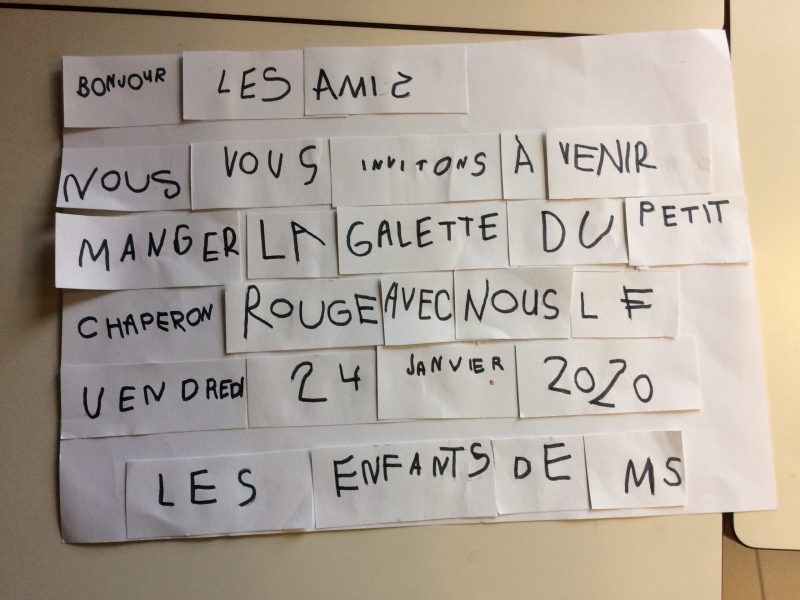 BONJOUR LES AMIS
NOUS VOUS INVITONS À VENIR
MANGER LA GALETTE DU PETIT
CHAPERON ROUGE AVEC NOUS LE
VENDREDI 24 JANVIER 2020
LES ENFANTS DE MS